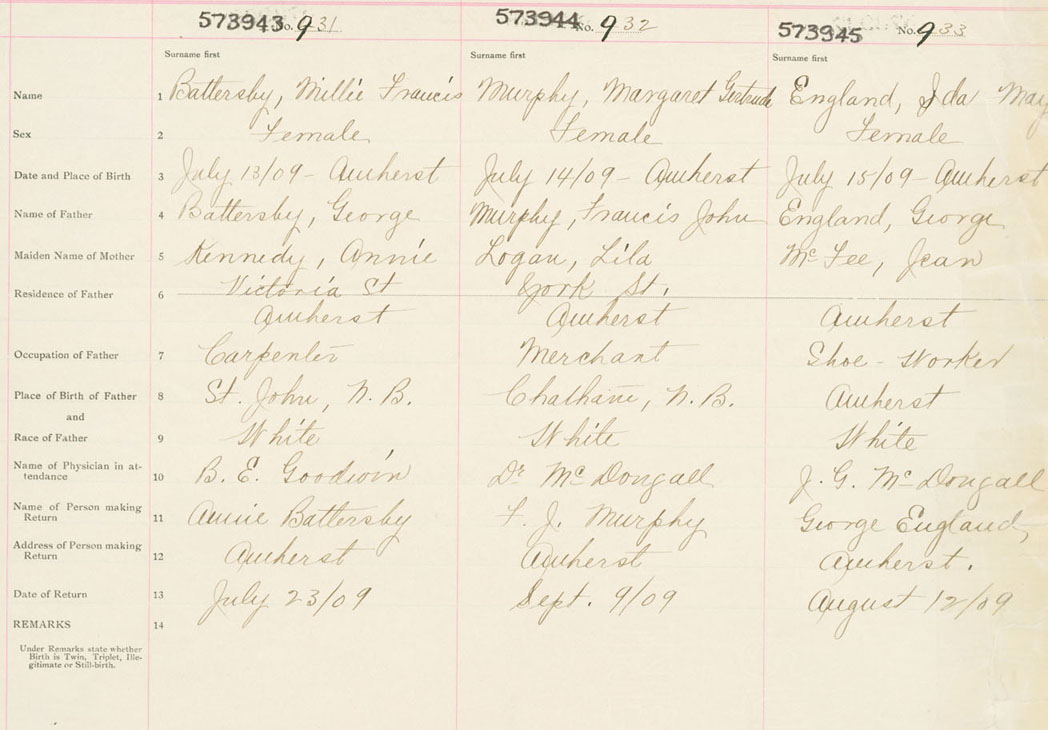 573943 No. 931 573944 No. 932 573945 No. 933
Surname first Surname first Surname first
Name 1 Battersby, Millie Francis Murphy, Margaret Gertrude England, Ida May
Sex 2 Female Female Female
Date and Place of Birth 3 July 13/09 - Amherst July 14/09 - Amherst July 15/09 - Amherst
Name of Father 4 Battersby, George Murphy, Francis John England, George
Maiden Name of Mother 5 Kennedy, Annie Logan, Lila McFee, Jean
Residence of Father 6 Victoria St York St.
Amherst Amherst Amherst
Occupation of Father 7 Carpenter Merchant Shoe - Worker
Place of Birth of Father 8 St. John, N.B. Chatham, N.B. Amherst
and
Race of Father 9 White White White
Name of Physician in at-
tendance 10 B. E. Goodwin Dr McDougall J. G. McDougall
Name of Person making
Return 11 Annie Battersby F. J. Murphy George England,
Address of Person making
Return 12 Amherst Amherst Amherst.
Date of Return 13 July 23/09 Sept. 9/09 August 12/09
REMARKS 14
Under Remarks state whether
Birth is Twin, Triplet, Ille-
gitimate or Still-birth.